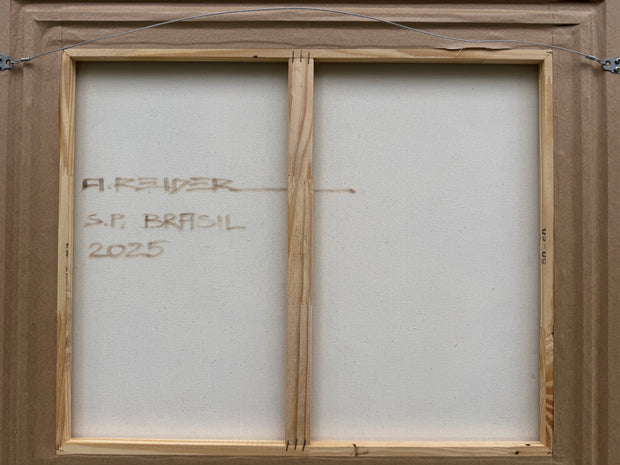 A.REIDER
S.P. BRASIL
2025